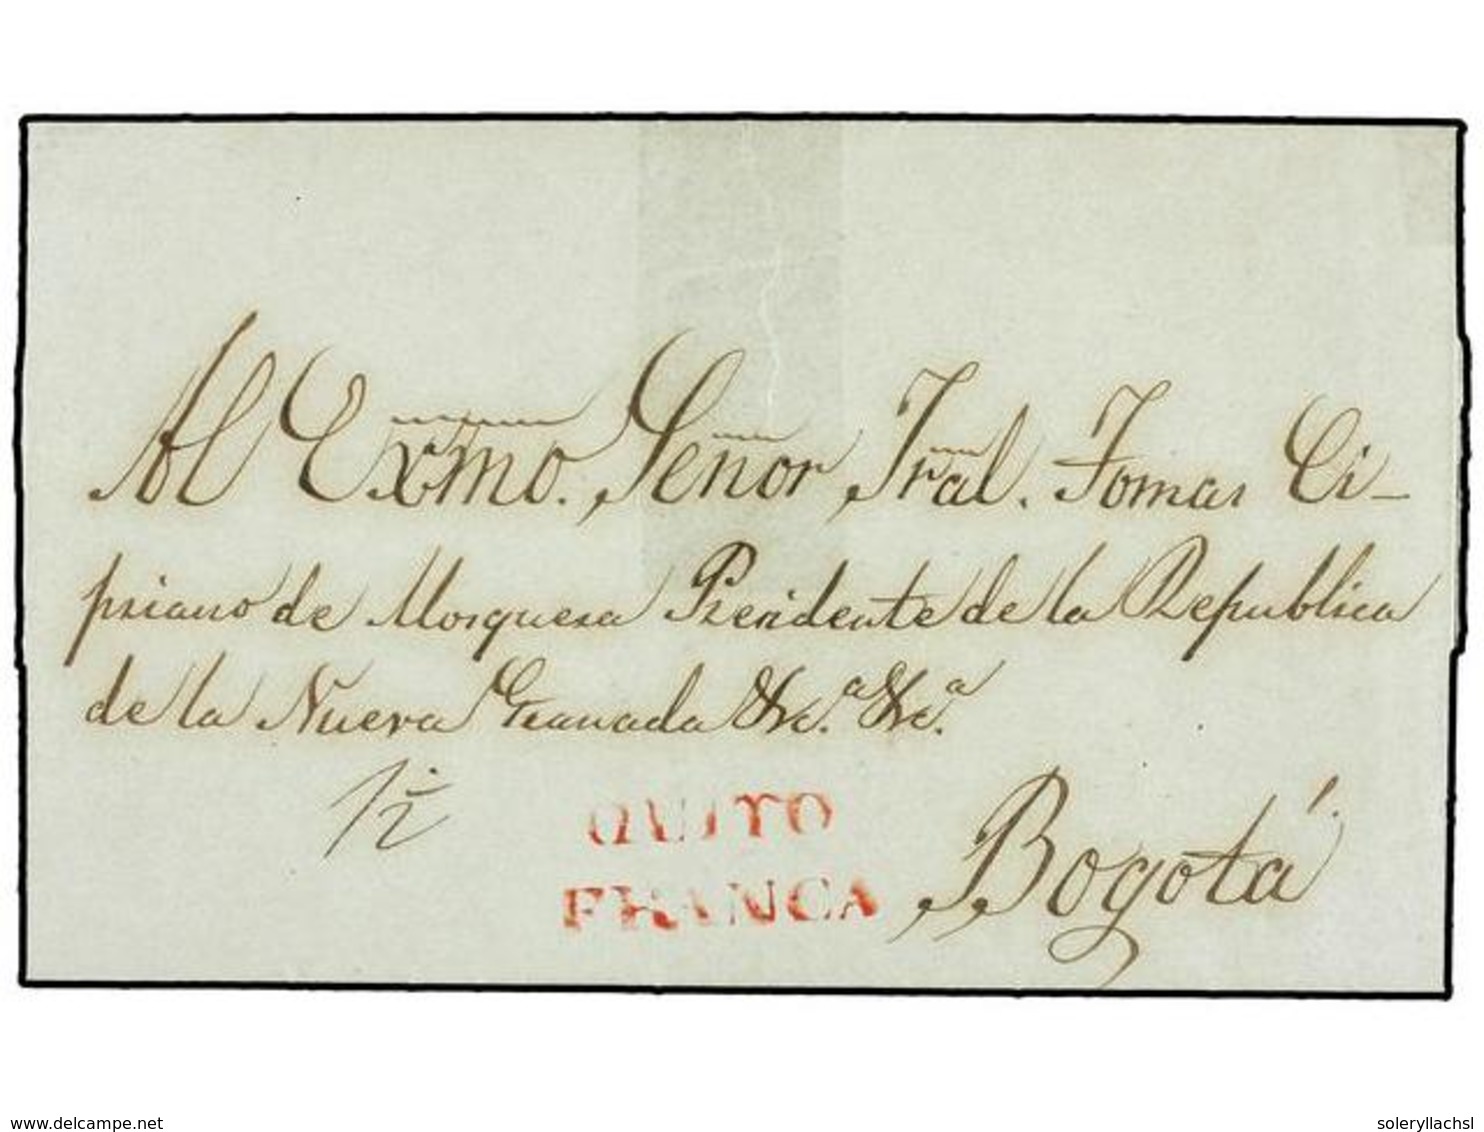 Al Exmo. Señor Jral. Tomas Ci-
priano de Mosquera Presidente de la Republica
de la Nueva Granada &c.ª &c.ª
1/2
QUITO
FRANCA
Bogotá
www.delcampe.net
soleryllachsl